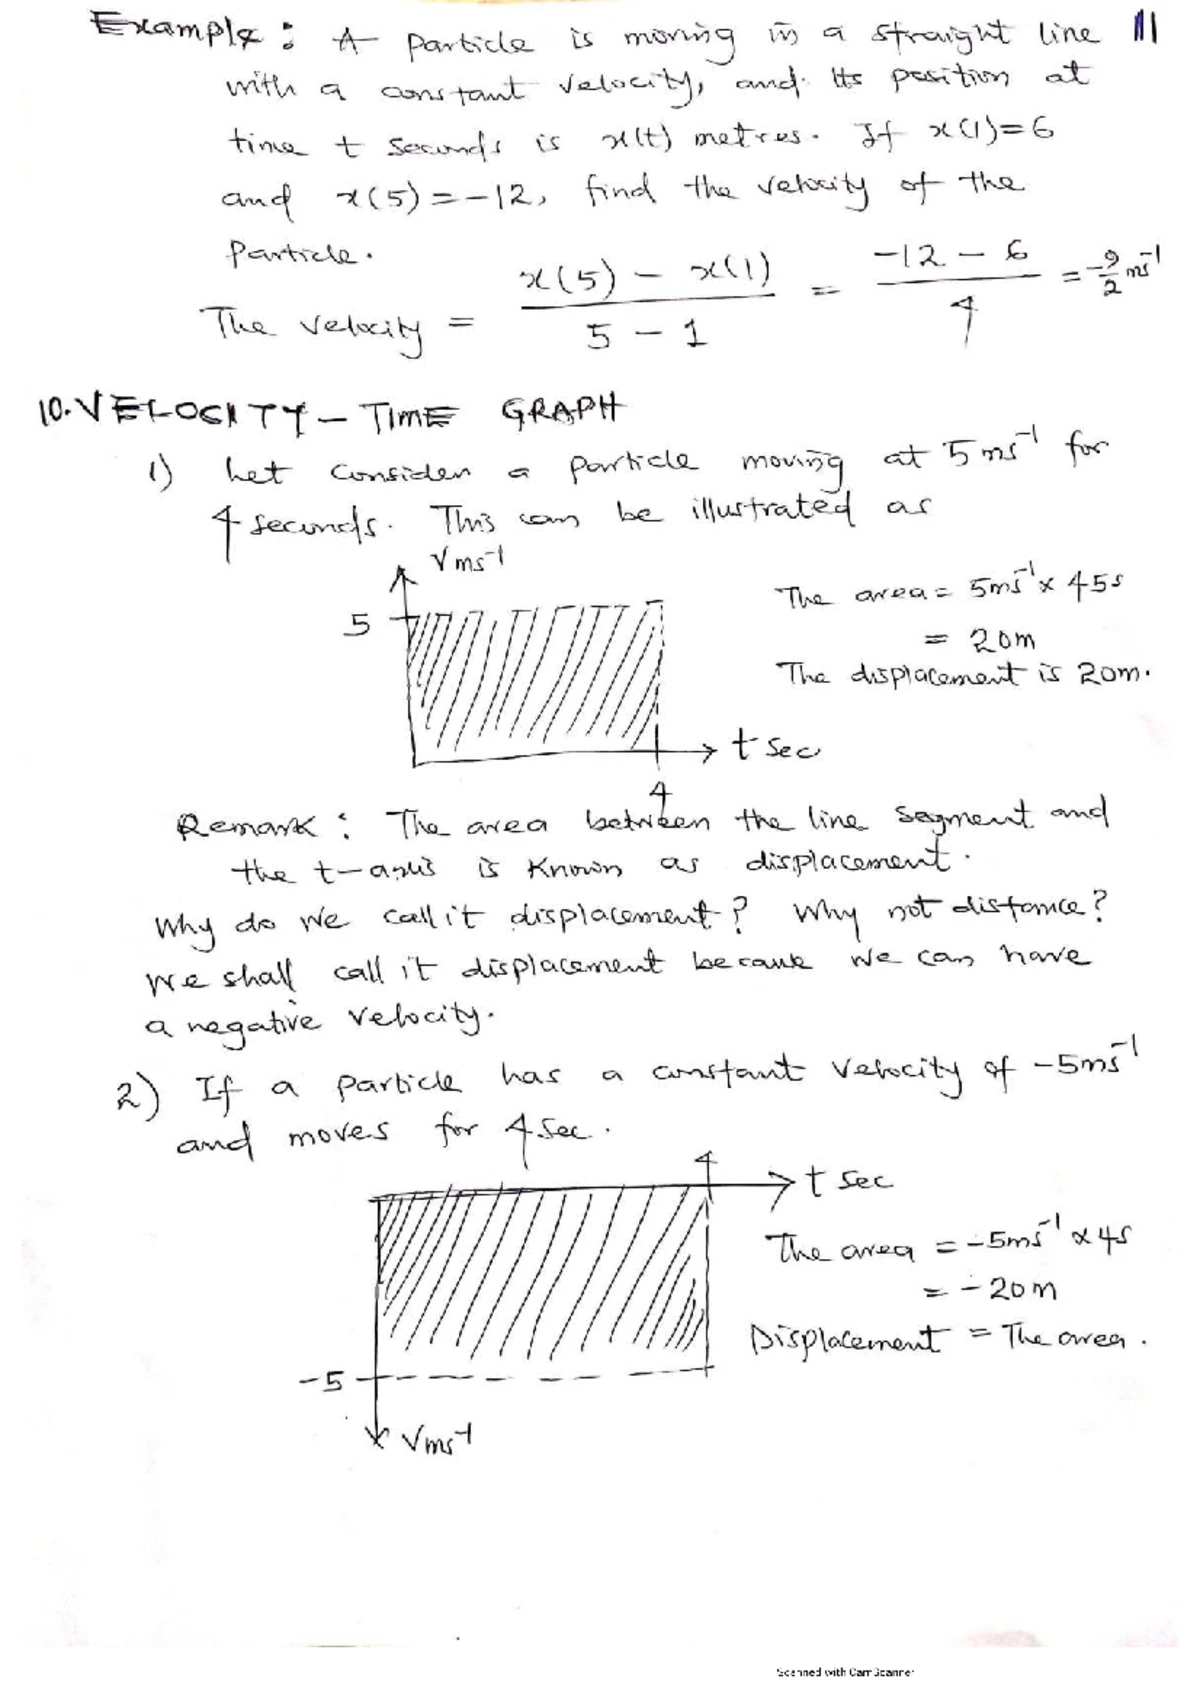 Example : A particle is moving in a straight line 11
with a constant velocity, and its position at
time t seconds is x(t) metres. If x(1)=6
and x(5)=-12, find the velocity of the
particle.
The velocity = x(5) - x(1) / 5 - 1 = -12 - 6 / 4 = -9/2 ms⁻¹
10. VELOCITY - TIME GRAPH
1) Let consider a particle moving at 5ms⁻¹ for
4 seconds. This can be illustrated as
Vms⁻¹
5
The area = 5ms⁻¹ x 45s
= 20m
The displacement is 20m.
t sec
4
Remark : The area between the line segment and
the t-axis is known as displacement.
Why do we call it displacement? Why not distance?
We shall call it displacement because we can have
a negative velocity.
2) If a particle has a constant velocity of -5ms⁻¹
and moves for 4 sec.
4
t sec
The area = -5ms⁻¹ x 4s
= -20m
Displacement = The area.
-5
Vms⁻¹
Scanned with CamScanner